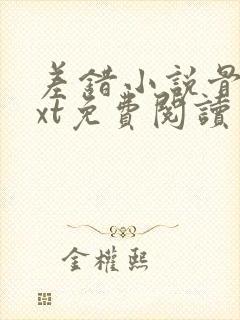 差錯小説
xt免費閱讀
金權熙